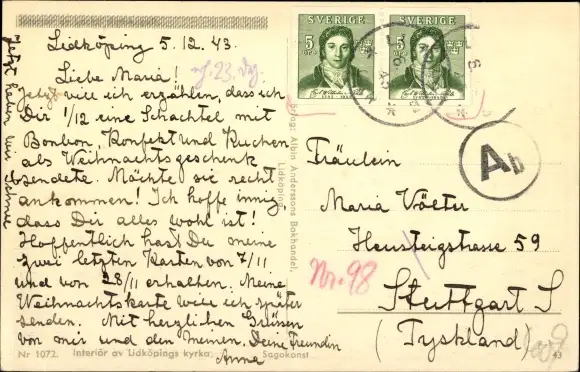 Lidköping 5.12.43.
Liebe Maria!
Jetzt will ich erzählen, dass ich
Dir 1/12 eine Schachtel mit
Bonbon, Konfekt und Kuchen
als Weihnachtsgeschenk
sendete. Möchte sie recht
ankommen! Ich hoffe innig
dass Dir alles wohl ist!
Hoffentlich hast Du meine
zwei letzten Karten von 7/11
und von 28/11 erhalten. Meine
Weihnachtskarte will ich später
senden. Mit herzlichen Grüssen
von mir und den Meinen. Deine Freundin
Anna
Jetzt haben wir Schnee
Nr 1072. Interiör av Lidköpings kyrka.
Sagokonst
43
Albin Anderssons Bokhandel,
Lidköping
SVERIGE
5
ÖRE
SVERIGE
5
ÖRE
Ab
Fräulein
Maria Völter
Heusteigstrasse 59
Stuttgart S
(Tyskland)
Nr. 98